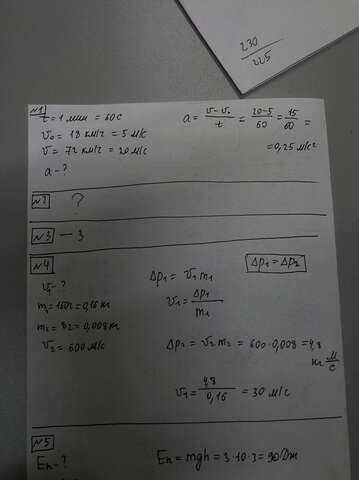 230
225
№1
t = 1 мин = 60 с
v₀ = 18 км/ч = 5 м/с
v = 72 км/ч = 20 м/с
a - ?
a = v - v₀ / t = 20-5 / 60 = 15 / 60 =
= 0,25 м/с²
№2 ?
№3 — 3
№4
v₁ - ?
m₂ = 8 г = 0,008 кг
v₂ = 600 м/с
Δp₁ = v₁ m₁
Δp₁ = Δp₂
v₁ = Δp₁ / m₁
Δp₂ = v₂ m₂ = 600 · 0,008 = 4,8
кг м/с
v₁ = 4,8 / 0,16 = 30 м/с
№5
Eп = mgh = 3 · 10 · 3 = 90 Дж